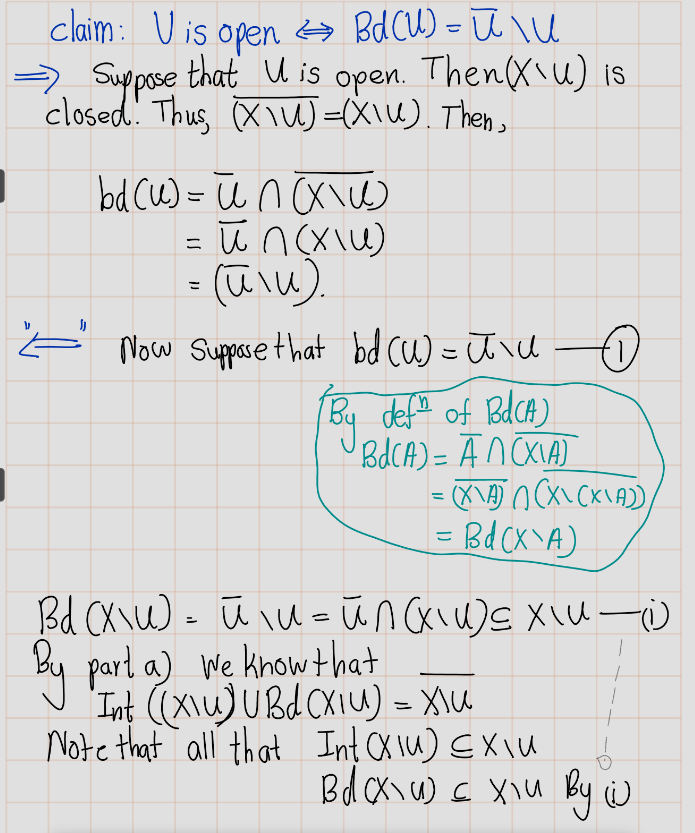 claim: U is open ⟺ Bd(U) = U̅ \ U
⟹ Suppose that U is open. Then (X\U) is
closed. Thus, \overline{(X\U)} = (X\U). Then,
bd(U) = U̅ ∩ \overline{(X\U)}
= U̅ ∩ (X\U)
= (U̅\U).
"⟸" Now suppose that bd(U) = U̅\U — ①
By defⁿ of Bd(A)
Bd(A) = A̅ ∩ \overline{(X\A)}
= \overline{(X\A)} ∩ \overline{(X\(X\A))}
= Bd(X\A)
Bd(X\U) = U̅ \U = U̅ ∩ (X\U) ⊆ X\U — (i)
By part a) we know that
Int ((X\U) ∪ Bd(X\U) = \overline{X\U}
Note that all that Int(X\U) ⊆ X\U
Bd(X\U) ⊆ X\U By (i)